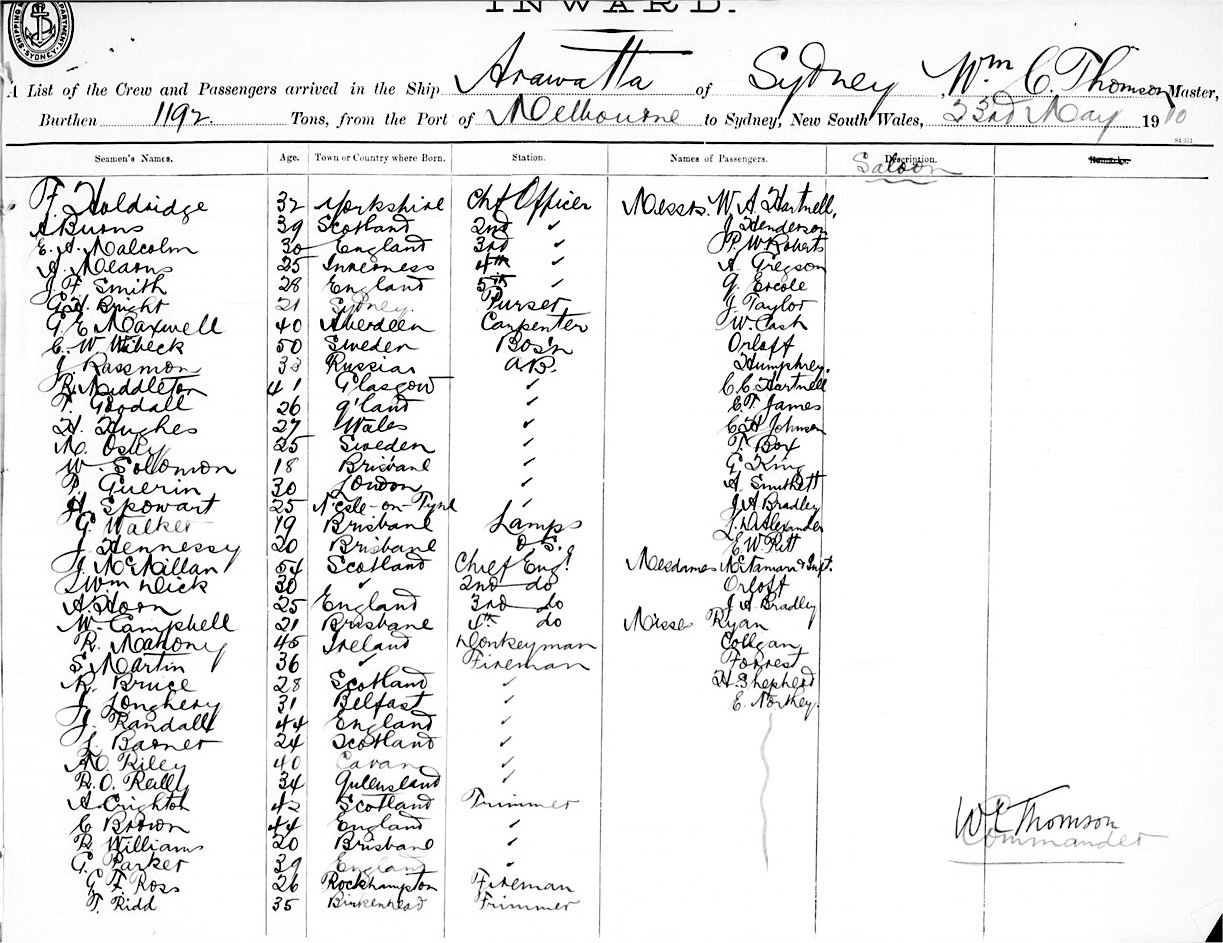 SHIPPING DEPARTMENT SYDNEY
INWARD.
A List of the Crew and Passengers arrived in the Ship Arawatta of Sydney, Wm C. Thomson Master,
Burthen 1192 Tons, from the Port of Melbourne to Sydney, New South Wales, 23rd May 1910
Seamen's Names. Age. Town or Country where Born. Station. Names of Passengers. Description. Remarks.
Saloon
F. Holdridge 32 Yorkshire Chf Officer Messrs. W A Hartnell,
A Burns 39 Scotland 2nd ✓ J Henderson
E. A. Malcolm 30 England 3rd ✓ P. W Roberts
A. Mearns 25 Inverness 4th ✓ A. Gregson
J F Smith 28 England 5th ✓ G. Ercole
G. H. Bright 21 Sydney. Purser J. Taylor
G. E. Maxwell 40 Aberdeen Carpenter W. Cash
C. W Wibeck 50 Sweden Bos'n Orloff
J. Rassmon 33 Russia A.B. Humphrey.
R. Middleton 41 Glasgow ✓ C C Hartnell
T. Goodall 26 G'land ✓ E. T. James
H. Hughes 27 Wales ✓ C H Johnson
M. 25 Sweden ✓ T. Box
W. Solomon 18 Brisbane ✓ G King
P. Guerin 30 London ✓ A.
A. Spowart 25 N'csle-on-Tyne ✓ J A Bradley
G. Walker 19 Brisbane Lamps Alexander
J. Hennessy 20 Brisbane O.S. E. W Pitt
J McMillan 54 Scotland Chief Eng. Mesdames McNamara & Inft.
Wm Dick 30 ✓ 2nd do Orloff
A. Horn 25 England 3rd do J A Bradley
W. Campbell 21 Brisbane 4th do Misses Ryan
R. Mahony 45 Ireland Donkeyman Collgan
S. Martin 36 ✓ Fireman Forrest
R. Bruce 28 Scotland ✓ H. Shepherd
J. Longhery 31 Belfast ✓ E. Northey.
J. Randall 44 England ✓
J. Barnet 24 Scotland ✓
M. Riley 40 Cavan ✓
R. O. Reilly 34 Queensland ✓
A. Crighton 42 Scotland Trimmer
C Brown 44 England ✓
R. Williams 20 Brisbane ✓
G. Parker 39 England ✓
G F Ross 26 Rockhampton Fireman
T. Ridd 35 Birkenhead Trimmer
W C Thomson
Commander